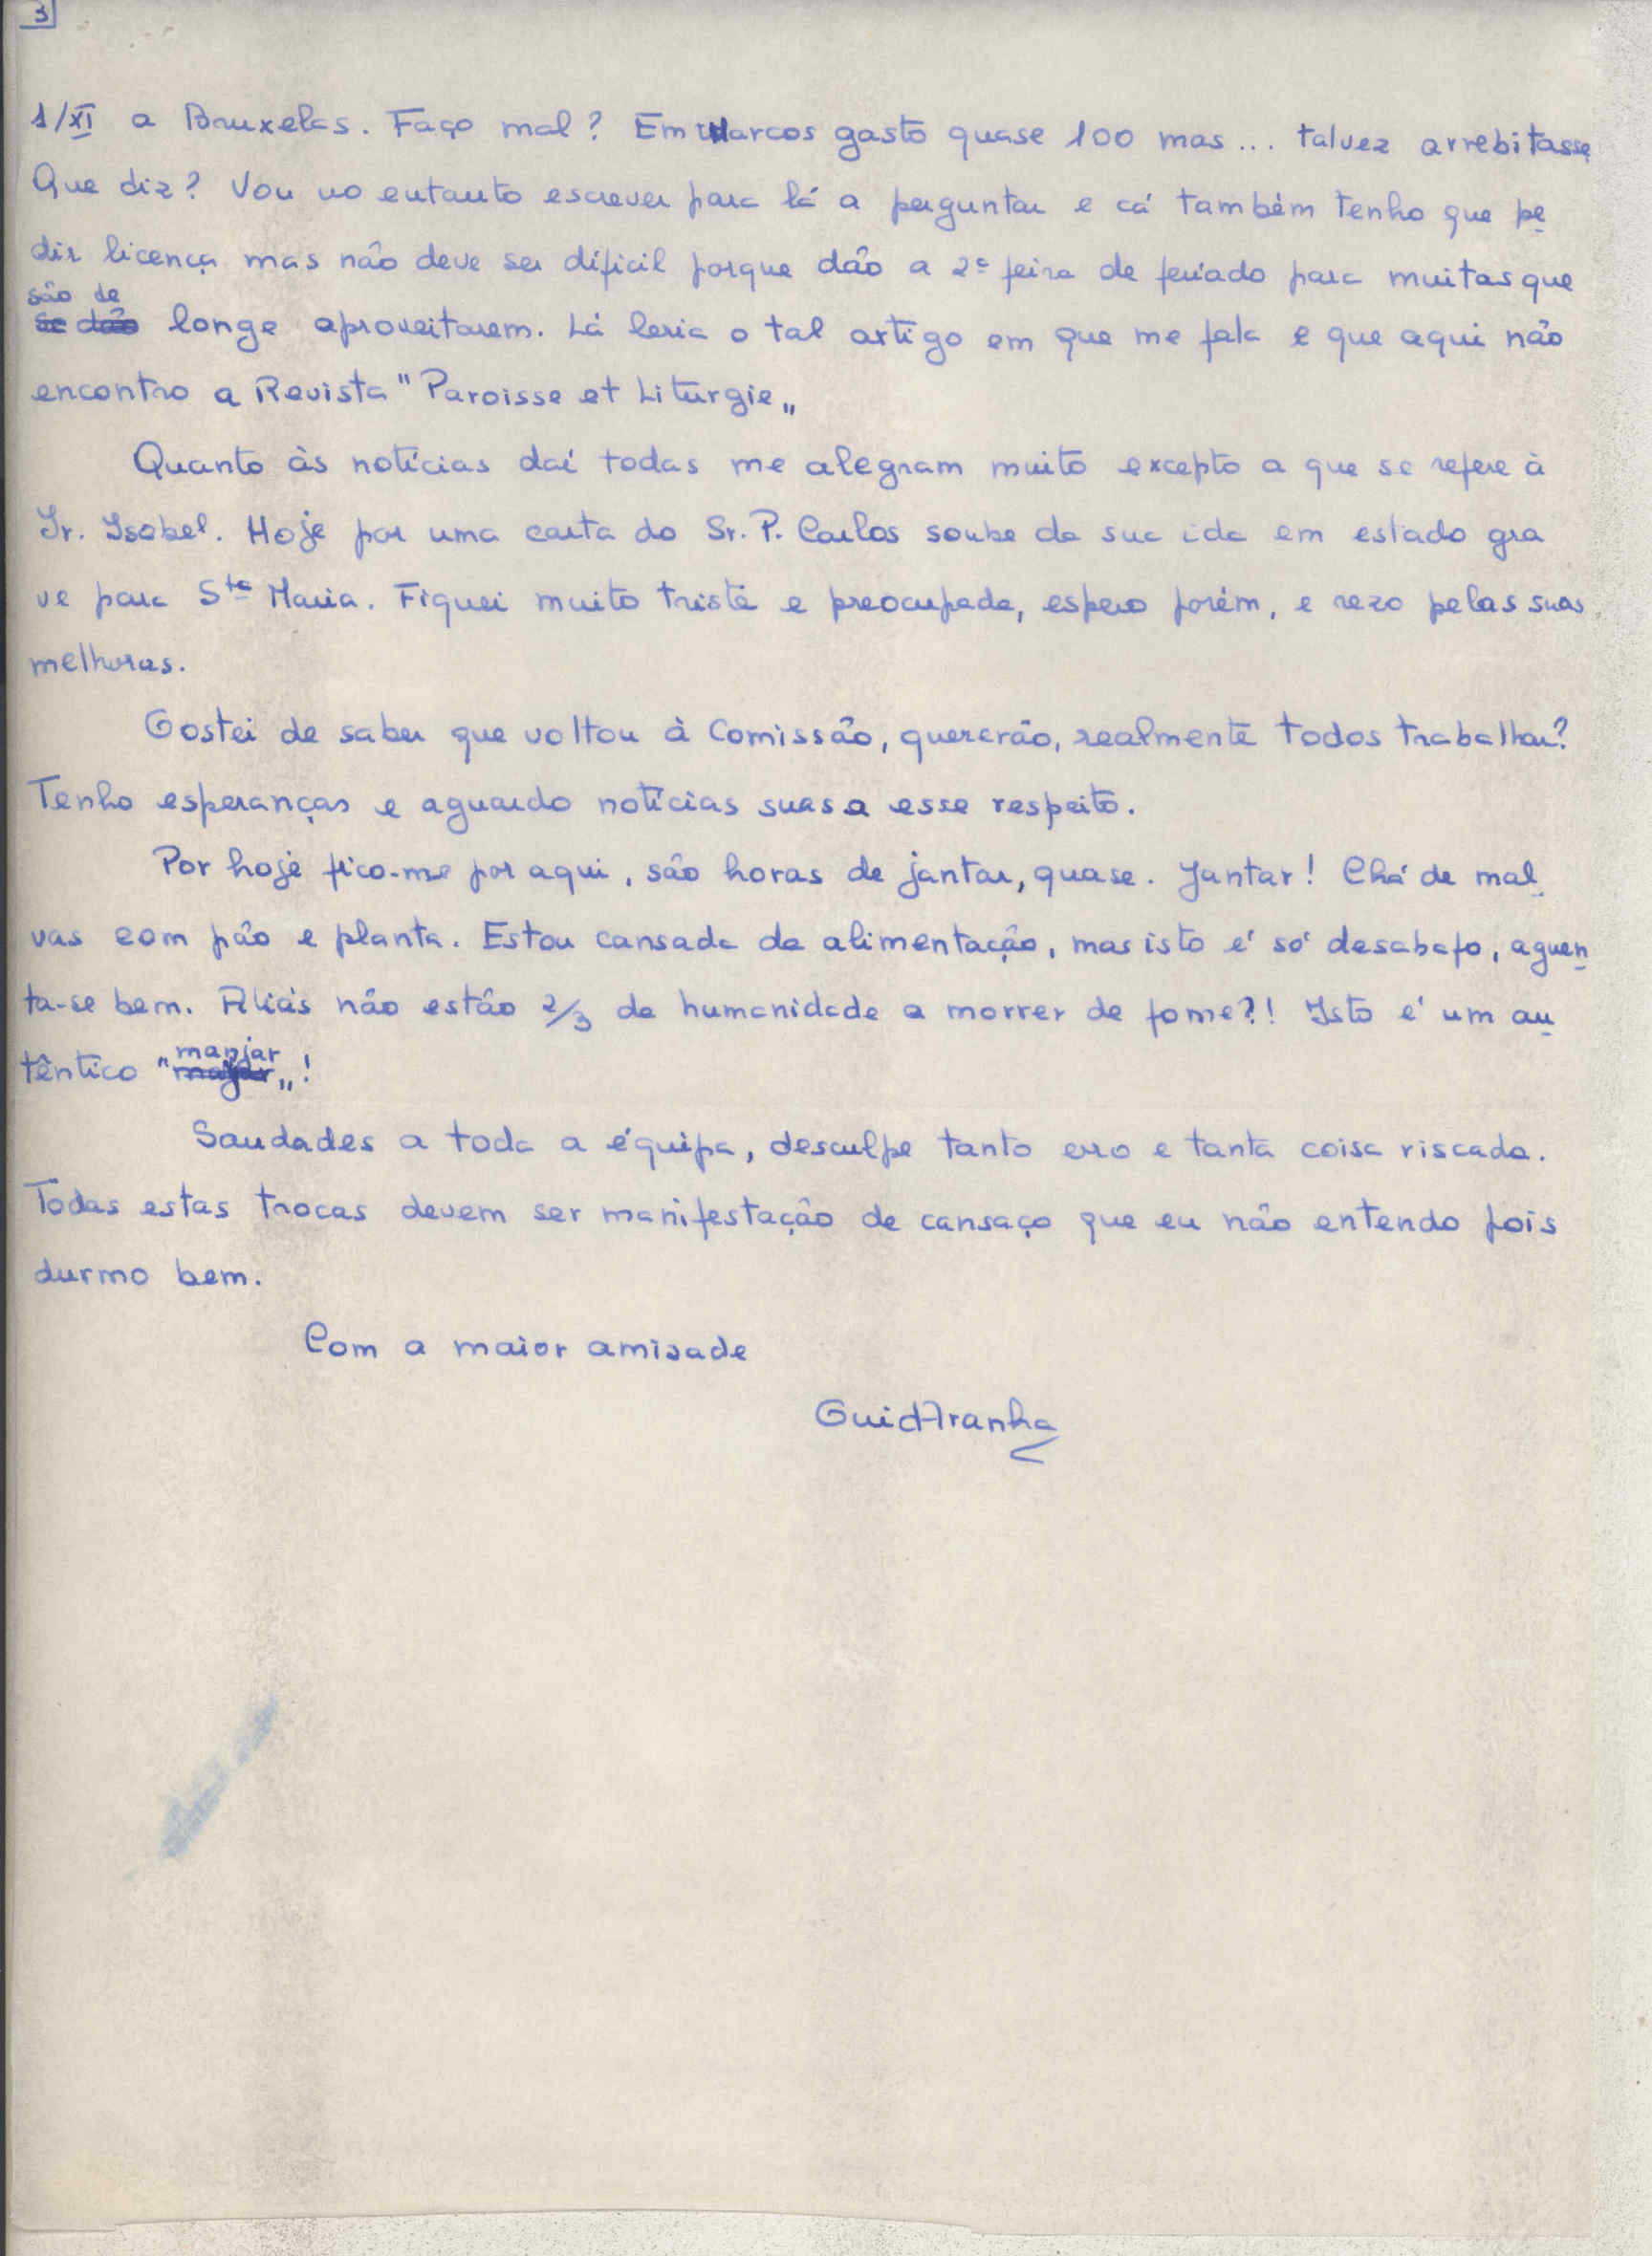 3
1/XI a Bruxelas. Faço mal? Em Marcos gasto quase 100 mas... talvez arrebitasse
Que diz? Vou no entanto escrever para lá a perguntar e cá também tenho que pe
dir licença mas não deve ser dificil porque dão a 2ª feira de feriado para muitas que
são de
se dão longe aproveitarem. Lá leria o tal artigo em que me fala e que aqui não
encontro a Revista "Paroisse et Liturgie„
Quanto às notícias daí todas me alegram muito excepto a que se refere à
Ir. Isabel. Hoje por uma carta do Sr. P. Carlos soube da sua ida em estado gra
ve para Sta Maria. Fiquei muito triste e preocupada, espero porém, e rezo pelas suas
melhoras.
Gostei de saber que voltou à Comissão, quererão, realmente todos trabalhar?
Tenho esperanças e aguardo notícias suas a esse respeito.
Por hoje fico-me por aqui, são horas de jantar, quase. Jantar! Chá de mal
vas com pão e planta. Estou cansada da alimentação, mas isto é só desabafo, aguen
ta-se bem. Aliás não estão 2/3 da humanidade a morrer de fome?! Isto é um au
manjar
têntico " „!
Saudades a toda a équipa, desculpe tanto erro e tanta coisa riscada.
Todas estas trocas devem ser manifestação de cansaço que eu não entendo pois
durmo bem.
Com a maior amizade
GuidAranha